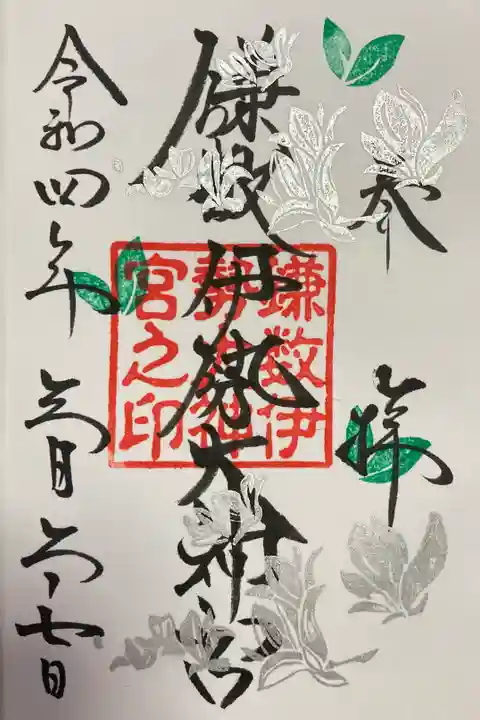 奉拝
鎌数伊勢大神宮
鎌数伊
勢大神
宮之印
令和四年 三月 二十七日